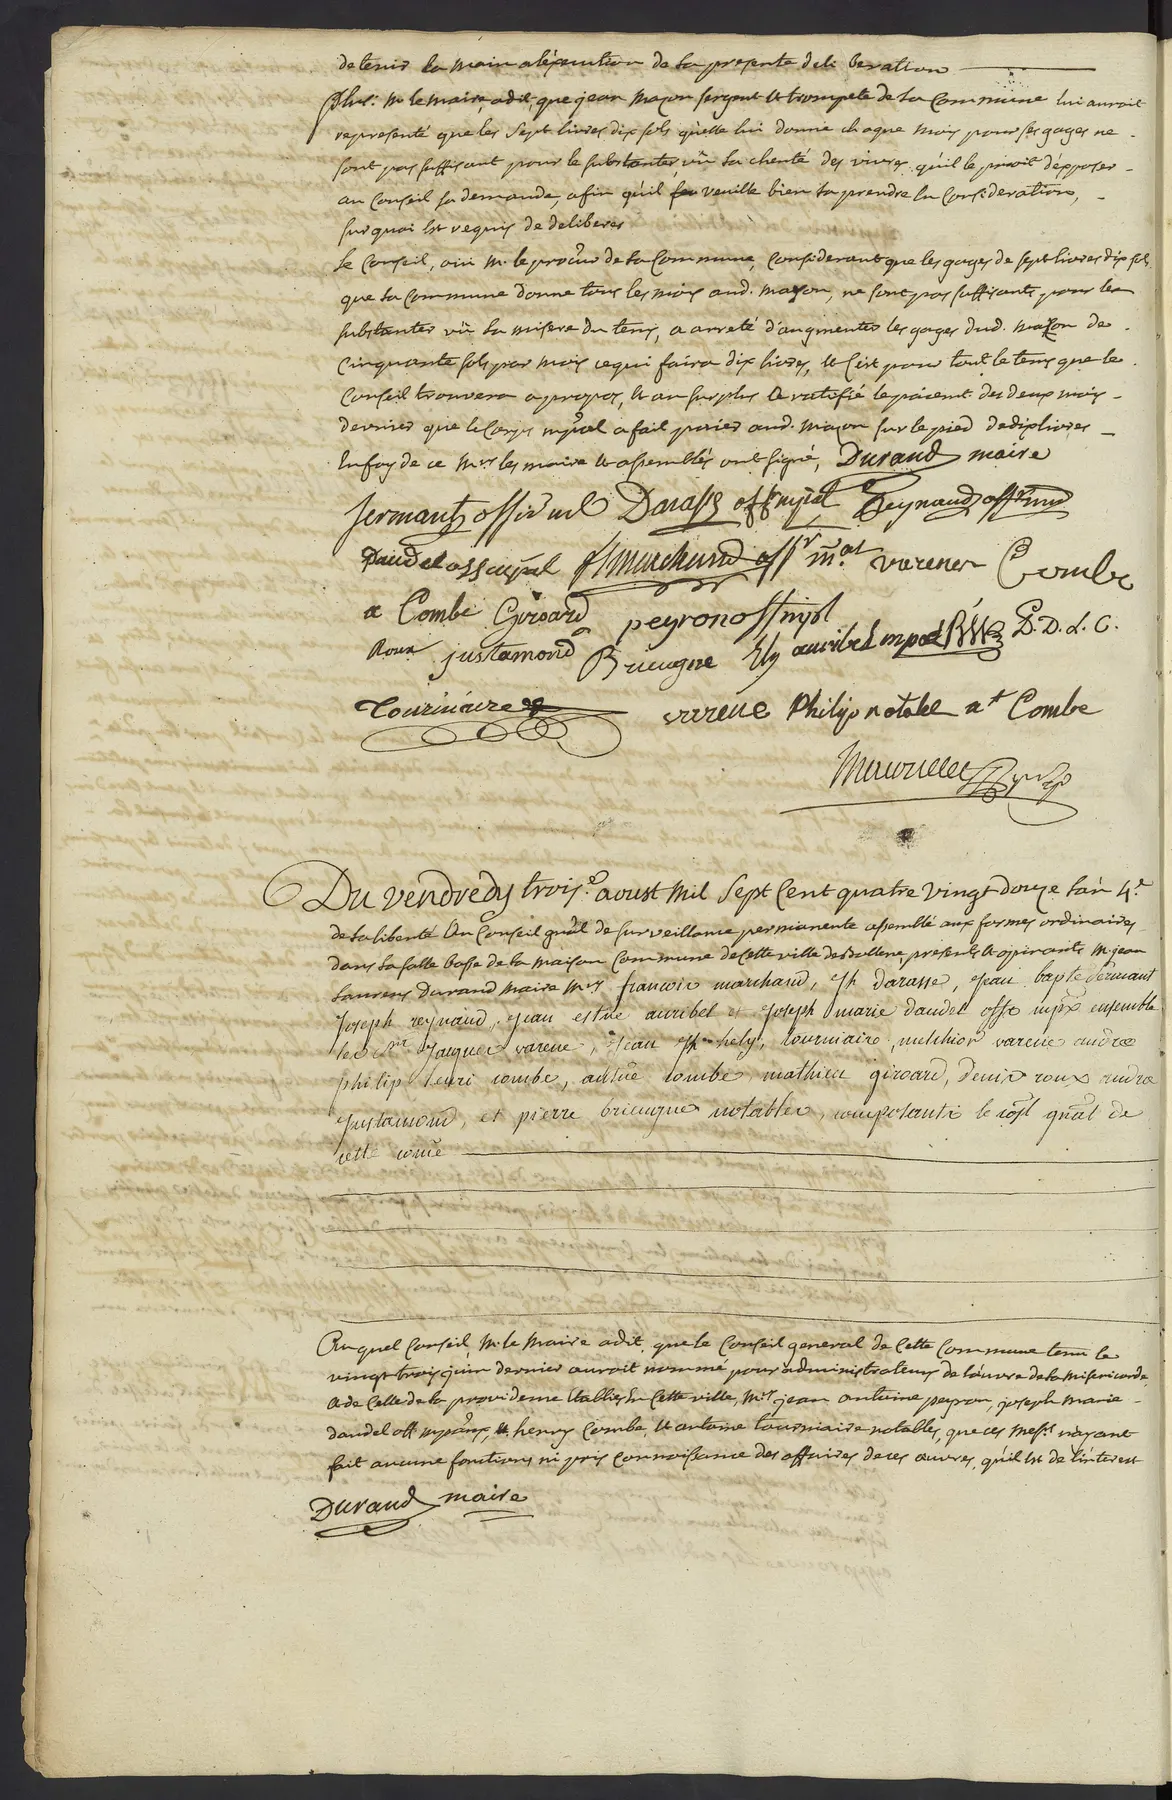 de tenir la main a l'éxecution de la presente deliberation
plus. Mr. le maire, a dit, que jean mazon sergent et trompete de la Commune lui auroit
representé que les sept livres dix sols qu'elle lui donne chaque mois pour ses gages ne
sont pas suffisant pour le substanter, vû la cherté des vivres, qu'il le prioit d'éxposer
au Conseil sa demande, afin qu'il veuille bien la prendre en Consideration,
sur quoi est requis de deliberer
Le Conseil, oui Mr. le procur. de la Commune, Considerant que les gages de sept livres dix sols
que la Commune donne tous les mois aud. mazon, ne sont pas suffisants pour le
substanter vû la misere du tems, a arreté d'augmenter les gages dud. mazon de
Cinquante sols par mois ce qui faira dix livres, et c'est pour tout le tems que le
Conseil trouvera a propos, et au surplus a ratifié le païement des deux mois
derniers que le Corps mpal a fait païer aud. mazon sur le pied de dix livres
En foy de ce Mrs les maire et assemblés ont signé, Durand maire
Sermant off. mpal Darasse off. mpal Reynaud off. mpal
Daudel off. mpal f. Marchand offr. m.al varene Combe
a Combe Giroard peyron off mpal
Roux justamond Brieugne Ely auribel mpal P. D. L. C.
Tourniaire varene Philip notable at Combe
Du vendredy trois.e aoust mil Sept Cent quatre vingt douze l'an 4.e
de la liberté Au Conseil gñal de surveillance permanente assemblé aux formes ordinaires
dans la salle basse de la maison Commune de cette ville de Bollene, presents et opinants Mr. jean
Laurens Durand maire Mrs françois marchand, Jh darasse, jean bapte Sermant
Joseph reynaud, jean estne auribel et Joseph marie daudel offs mpx ensemble
les srs jacques varene, jean Jh hely, tourniaire, melchior varene andré
philip henri combe, antne combe, mathieu giroard, denix roux andré
Justamond, et pierre brieugne notables, composants le cosl gñal de
cette comne
Auquel Conseil, Mr. le Maire a dit, que le Conseil general de cette Commune tenu le
vingt trois juin dernier auroit nommé pour administrateurs de l'œuvre de la misericorde,
et de Celle de la providence établies en cette ville, Mrs. jean antoine peyron, joseph marie
daudel off. mpaux, et henry Combe, et antoine tourniaire notables, que ces Messrs. n'ayant
fait aucune fonctions ni pris connoissance des affaires de ces œuvres, qu'il est de l'interest
Durand maire